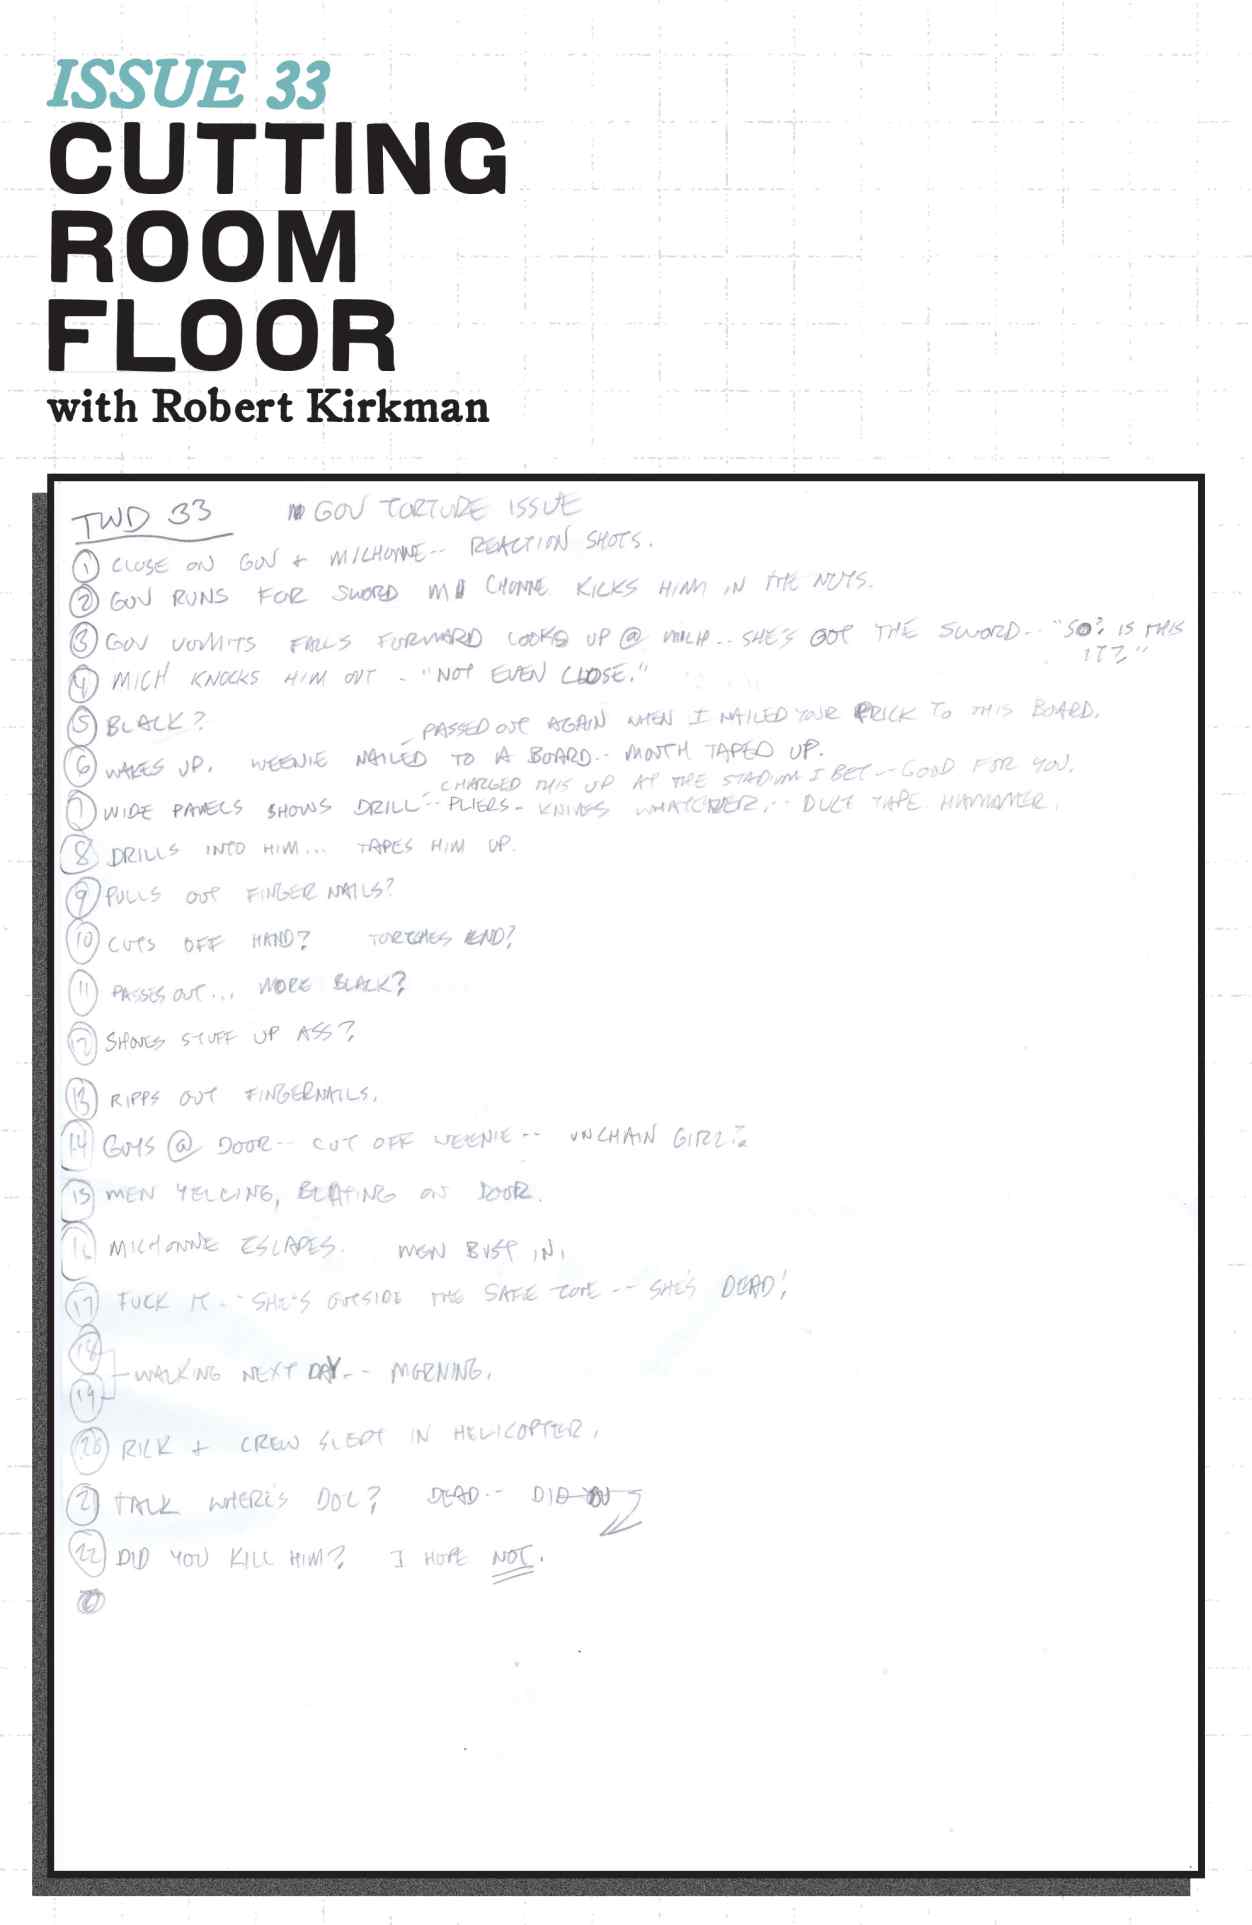 ISSUE 33
CUTTING
ROOM
FLOOR
with Robert Kirkman
TWD 33 GOV TORTURE ISSUE
1 CLOSE ON GOV + MICHONNE-- REACTION SHOTS.
2 GOV RUNS FOR SWORD MICHONNE KICKS HIM IN THE NUTS.
3 GOV VOMITS FALLS FORWARD LOOKS UP @ MICH-- SHE'S GOT THE SWORD-- "SO? IS THIS
IT?"
4 MICH KNOCKS HIM OUT - "NOT EVEN CLOSE."
5 BLACK?
PASSED OUT AGAIN WHEN I NAILED YOUR PRICK TO THIS BOARD.
6 WAKES UP. WEENIE NAILED TO A BOARD-- MOUTH TAPED UP.
CHARGED THIS UP AT THE STADIUM I BET -- GOOD FOR YOU.
7 WIDE PANELS SHOWS DRILL-- PLIERS- KNIVES WHATEVER-- DUCT TAPE. HAMMER.
8 DRILLS INTO HIM... TAPES HIM UP.
9 PULLS OUT FINGER NAILS?
10 CUTS OFF HAND? TORCHES END?
11 PASSES OUT... MORE BLACK?
12 SHOVES STUFF UP ASS?
13 RIPPS OUT FINGERNAILS.
14 GUYS @ DOOR-- CUT OFF WEENIE-- UNCHAIN GIRL?
15 MEN YELLING, BEATING ON DOOR.
16 MICHONNE ESCAPES. MEN BUST IN.
17 FUCK IT-- SHE'S OUTSIDE THE SAFE ZONE -- SHE'S DEAD!
18
WALKING NEXT DAY-- MORNING.
19
20 RICK + CREW SLEPT IN HELICOPTER.
21 TALK WHERE'S DOC? DEAD-- DID YOU
22 DID YOU KILL HIM? I HOPE NOT.